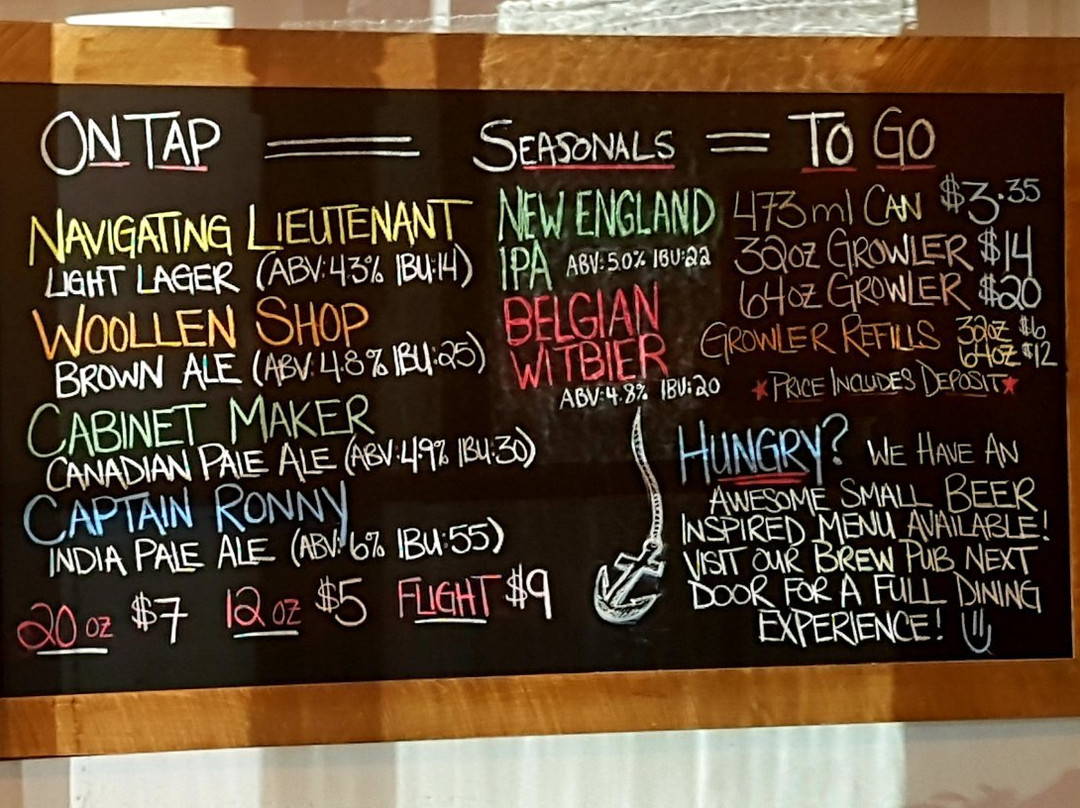 ON TAP
NAVIGATING LIEUTENANT
LIGHT LAGER (ABV: 4.3% IBU: 14)
WOOLLEN SHOP
BROWN ALE (ABV: 4.8% IBU: 25)
CABINET MAKER
CANADIAN PALE ALE (ABV: 4.9% IBU: 30)
CAPTAIN RONNY
INDIA PALE ALE (ABV: 6% IBU: 55)
20 OZ $7 12 OZ $5 FLIGHT $9
SEASONALS
NEW ENGLAND
IPA ABV: 5.0% IBU: 22
BELGIAN
WITBIER
ABV: 4.8% IBU: 20
TO GO
473 ml CAN $3.35
32oz GROWLER $14
64oz GROWLER $20
GROWLER REFILLS 32oz $6
64oz $12
★PRICE INCLUDES DEPOSIT★
HUNGRY? WE HAVE AN
AWESOME SMALL BEER
INSPIRED MENU AVAILABLE!
VISIT OUR BREW PUB NEXT
DOOR FOR A FULL DINING
EXPERIENCE!